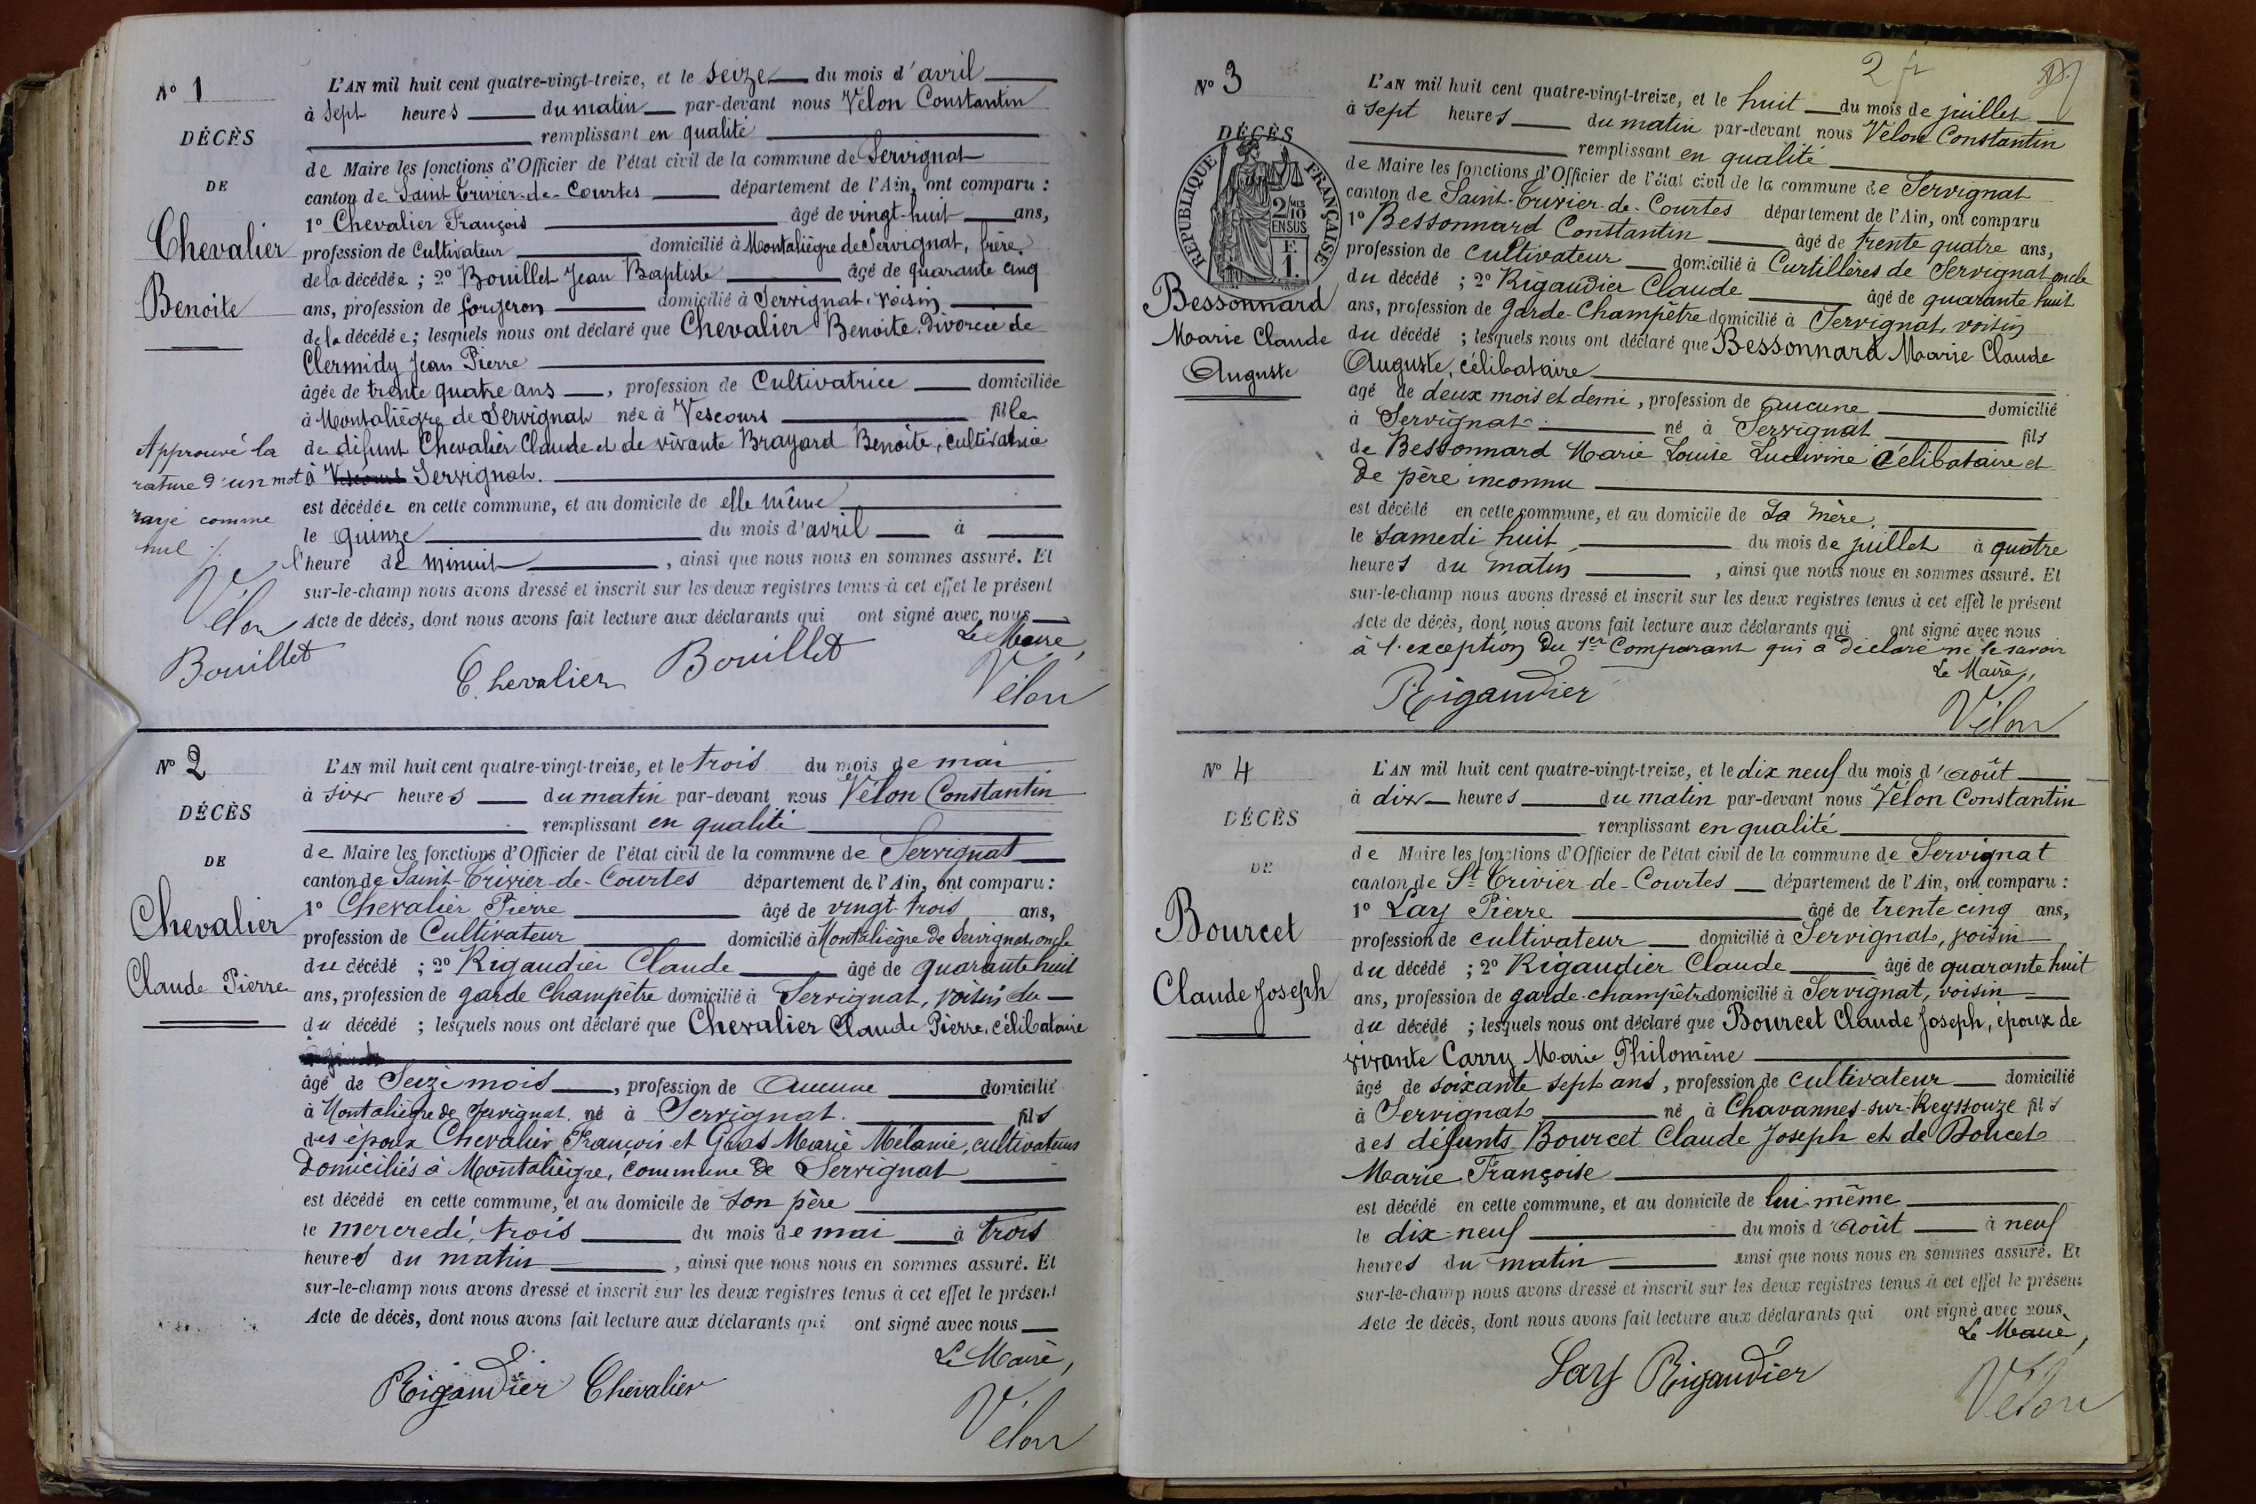 N° 1
DÉCÈS
DE
Chevalier
Benoite
L'AN mil huit cent quatre-vingt-treize, et le seize du mois d'avril
à sept heures du matin par-devant nous Vélon Constantin
remplissant en qualité
de Maire les fonctions d'Officier de l'état civil de la commune de Servignat
canton de Saint-Trivier-de-Courtes département de l'Ain, ont comparu :
1° Chevalier François âgé de vingt-huit ans,
profession de Cultivateur domicilié à Montaliègre de Servignat, frère
de la décédée ; 2° Bouillet Jean Baptiste âgé de quarante cinq
ans, profession de forgeron domicilié à Servignat, voisin
de la décédée ; lesquels nous ont déclaré que Chevalier Benoite. Divorcée de
Clermidy Jean Pierre
âgée de trente quatre ans, profession de Cultivatrice domiciliée
à Montaliègre de Servignat née à Vescours fille
de défunt Chevalier Claude et de vivante Brayard Benoite, cultivatrice
à Vescours Servignat.
est décédée en cette commune, et au domicile de elle même
le quinze du mois d'avril à
l'heure de minuit, ainsi que nous nous en sommes assuré. Et
sur-le-champ nous avons dressé et inscrit sur les deux registres tenus à cet effet le présent
Acte de décès, dont nous avons fait lecture aux déclarants qui ont signé avec nous
Le Maire,
Approuvé la
rature d'un mot
rayé comme
nul
Vélon
Bouillet
Chevalier Bouillet Vélon
N° 2
DÉCÈS
DE
Chevalier
Claude Pierre
L'AN mil huit cent quatre-vingt-treize, et le trois du mois de mai
à six heures du matin par-devant nous Vélon Constantin
remplissant en qualité
de Maire les fonctions d'Officier de l'état civil de la commune de Servignat
canton de Saint-Trivier-de-Courtes département de l'Ain, ont comparu :
1° Chevalier Pierre âgé de vingt-trois ans,
profession de Cultivateur domicilié à Montaliègre de Servignat, oncle
du décédé ; 2° Rigaudier Claude âgé de quarante huit
ans, profession de garde champêtre domicilié à Servignat, voisin du
du décédé ; lesquels nous ont déclaré que Chevalier Claude Pierre, célibataire
âgé de Seize mois, profession de Aucune domicilié
à Montaliègre de Servignat né à Servignat. fils
des époux Chevalier François et Gras Marie Mélanie, cultivateurs
Domiciliés à Montaliègre, Commune de Servignat
est décédé en cette commune, et au domicile de son père
le mercredi, trois du mois de mai à trois
heures du matin, ainsi que nous nous en sommes assuré. Et
sur-le-champ nous avons dressé et inscrit sur les deux registres tenus à cet effet le présent
Acte de décès, dont nous avons fait lecture aux déclarants qui ont signé avec nous
Le Maire,
Rigaudier Chevalier
Vélon
2 fr
N° 3
DÉCÈS
RÉPUBLIQUE FRANÇAISE
2/10
EN SUS
F.
1.
Bessonnard
Marie Claude
Auguste
L'AN mil huit cent quatre-vingt-treize, et le huit du mois de juillet
à sept heures du matin par-devant nous Vélon Constantin
remplissant en qualité
de Maire les fonctions d'Officier de l'état civil de la commune de Servignat
canton de Saint-Trivier-de-Courtes département de l'Ain, ont comparu
1° Bessonnard Constantin âgé de trente quatre ans,
profession de Cultivateur domicilié à Curtillères de Servignat, oncle
du décédé ; 2° Rigaudier Claude âgé de quarante huit
ans, profession de Garde-Champêtre domicilié à Servignat, voisin
du décédé ; lesquels nous ont déclaré que Bessonnard Marie Claude
Auguste, célibataire
âgé de deux mois et demi, profession de aucune domicilié
à Servignat né à Servignat fils
de Bessonnard Marie Louise Ludivine Célibataire et
de père inconnu
est décédé en cette commune, et au domicile de sa mère.
le samedi huit du mois de juillet à quatre
heures du matin, ainsi que nous nous en sommes assuré. Et
sur-le-champ nous avons dressé et inscrit sur les deux registres tenus à cet effet le présent
Acte de décès, dont nous avons fait lecture aux déclarants qui ont signé avec nous
à l'exception du 1er Comparant qui a déclaré ne le savoir
Le Maire,
Rigaudier
Vélon
N° 4
DÉCÈS
DE
Bourcet
Claude Joseph
L'AN mil huit cent quatre-vingt-treize, et le dix neuf du mois d'août
à dix heures du matin par-devant nous Vélon Constantin
remplissant en qualité
de Maire les fonctions d'Officier de l'état civil de la commune de Servignat
canton de St Trivier-de-Courtes département de l'Ain, ont comparu :
1° Lay Pierre âgé de trente cinq ans,
profession de cultivateur domicilié à Servignat, voisin
du décédé ; 2° Rigaudier Claude âgé de quarante huit
ans, profession de garde-champêtre domicilié à Servignat, voisin
du décédé ; lesquels nous ont déclaré que Bourcet Claude Joseph, époux de
vivante Carry Marie Philomène
âgé de soixante sept ans, profession de cultivateur domicilié
à Servignat né à Chavannes-sur-Reyssouze fils
des défunts Bourcet Claude Joseph et de Doucet
Marie Françoise
est décédé en cette commune, et au domicile de lui même
le dix-neuf du mois d'août à neuf
heures du matin ainsi que nous nous en sommes assuré. Et
sur-le-champ nous avons dressé et inscrit sur les deux registres tenus à cet effet le présent
Acte de décès, dont nous avons fait lecture aux déclarants qui ont signé avec nous
Le Maire,
Lay Rigaudier
Vélon